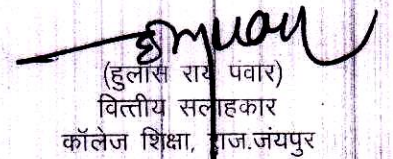 (हुलास राय पंवार)
वित्तीय सलाहकार
कॉलेज शिक्षा, राज.जयपुर